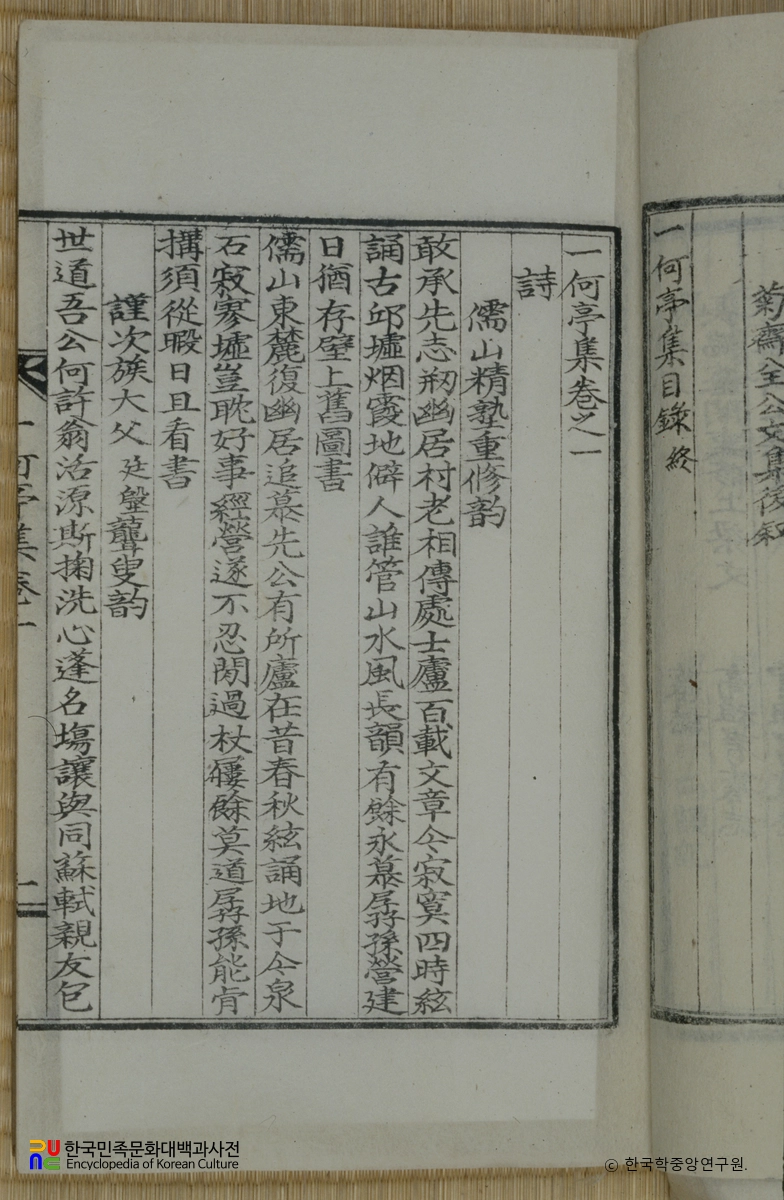 菊齋全公文集後叙
一何亭集目錄終
一何亭集卷之一
詩
儒山精塾重修韵
敢承先志刱幽居村老相傳處士廬百載文章今寂寞四時絃
誦古邱墟烟霞地僻人誰管山水風長韻有餘永慕孱孫營建
日猶存壁上舊圖書
儒山東麓復幽居追慕先公有所廬在昔春秋絃誦地于今泉
石寂寥墟豈耽好事經營遂不忍閒過杖屨餘莫道孱孫能肯
搆須從暇日且看書
謹次族大父廷盤聾叟韵
世道吾公何許翁活源斯掬洗心蓬名塲讓與同蘇軾親友包
一何亭集卷一
一
한국민족문화대백과사전
Encyclopedia of Korean Culture
© 한국학중앙연구원.